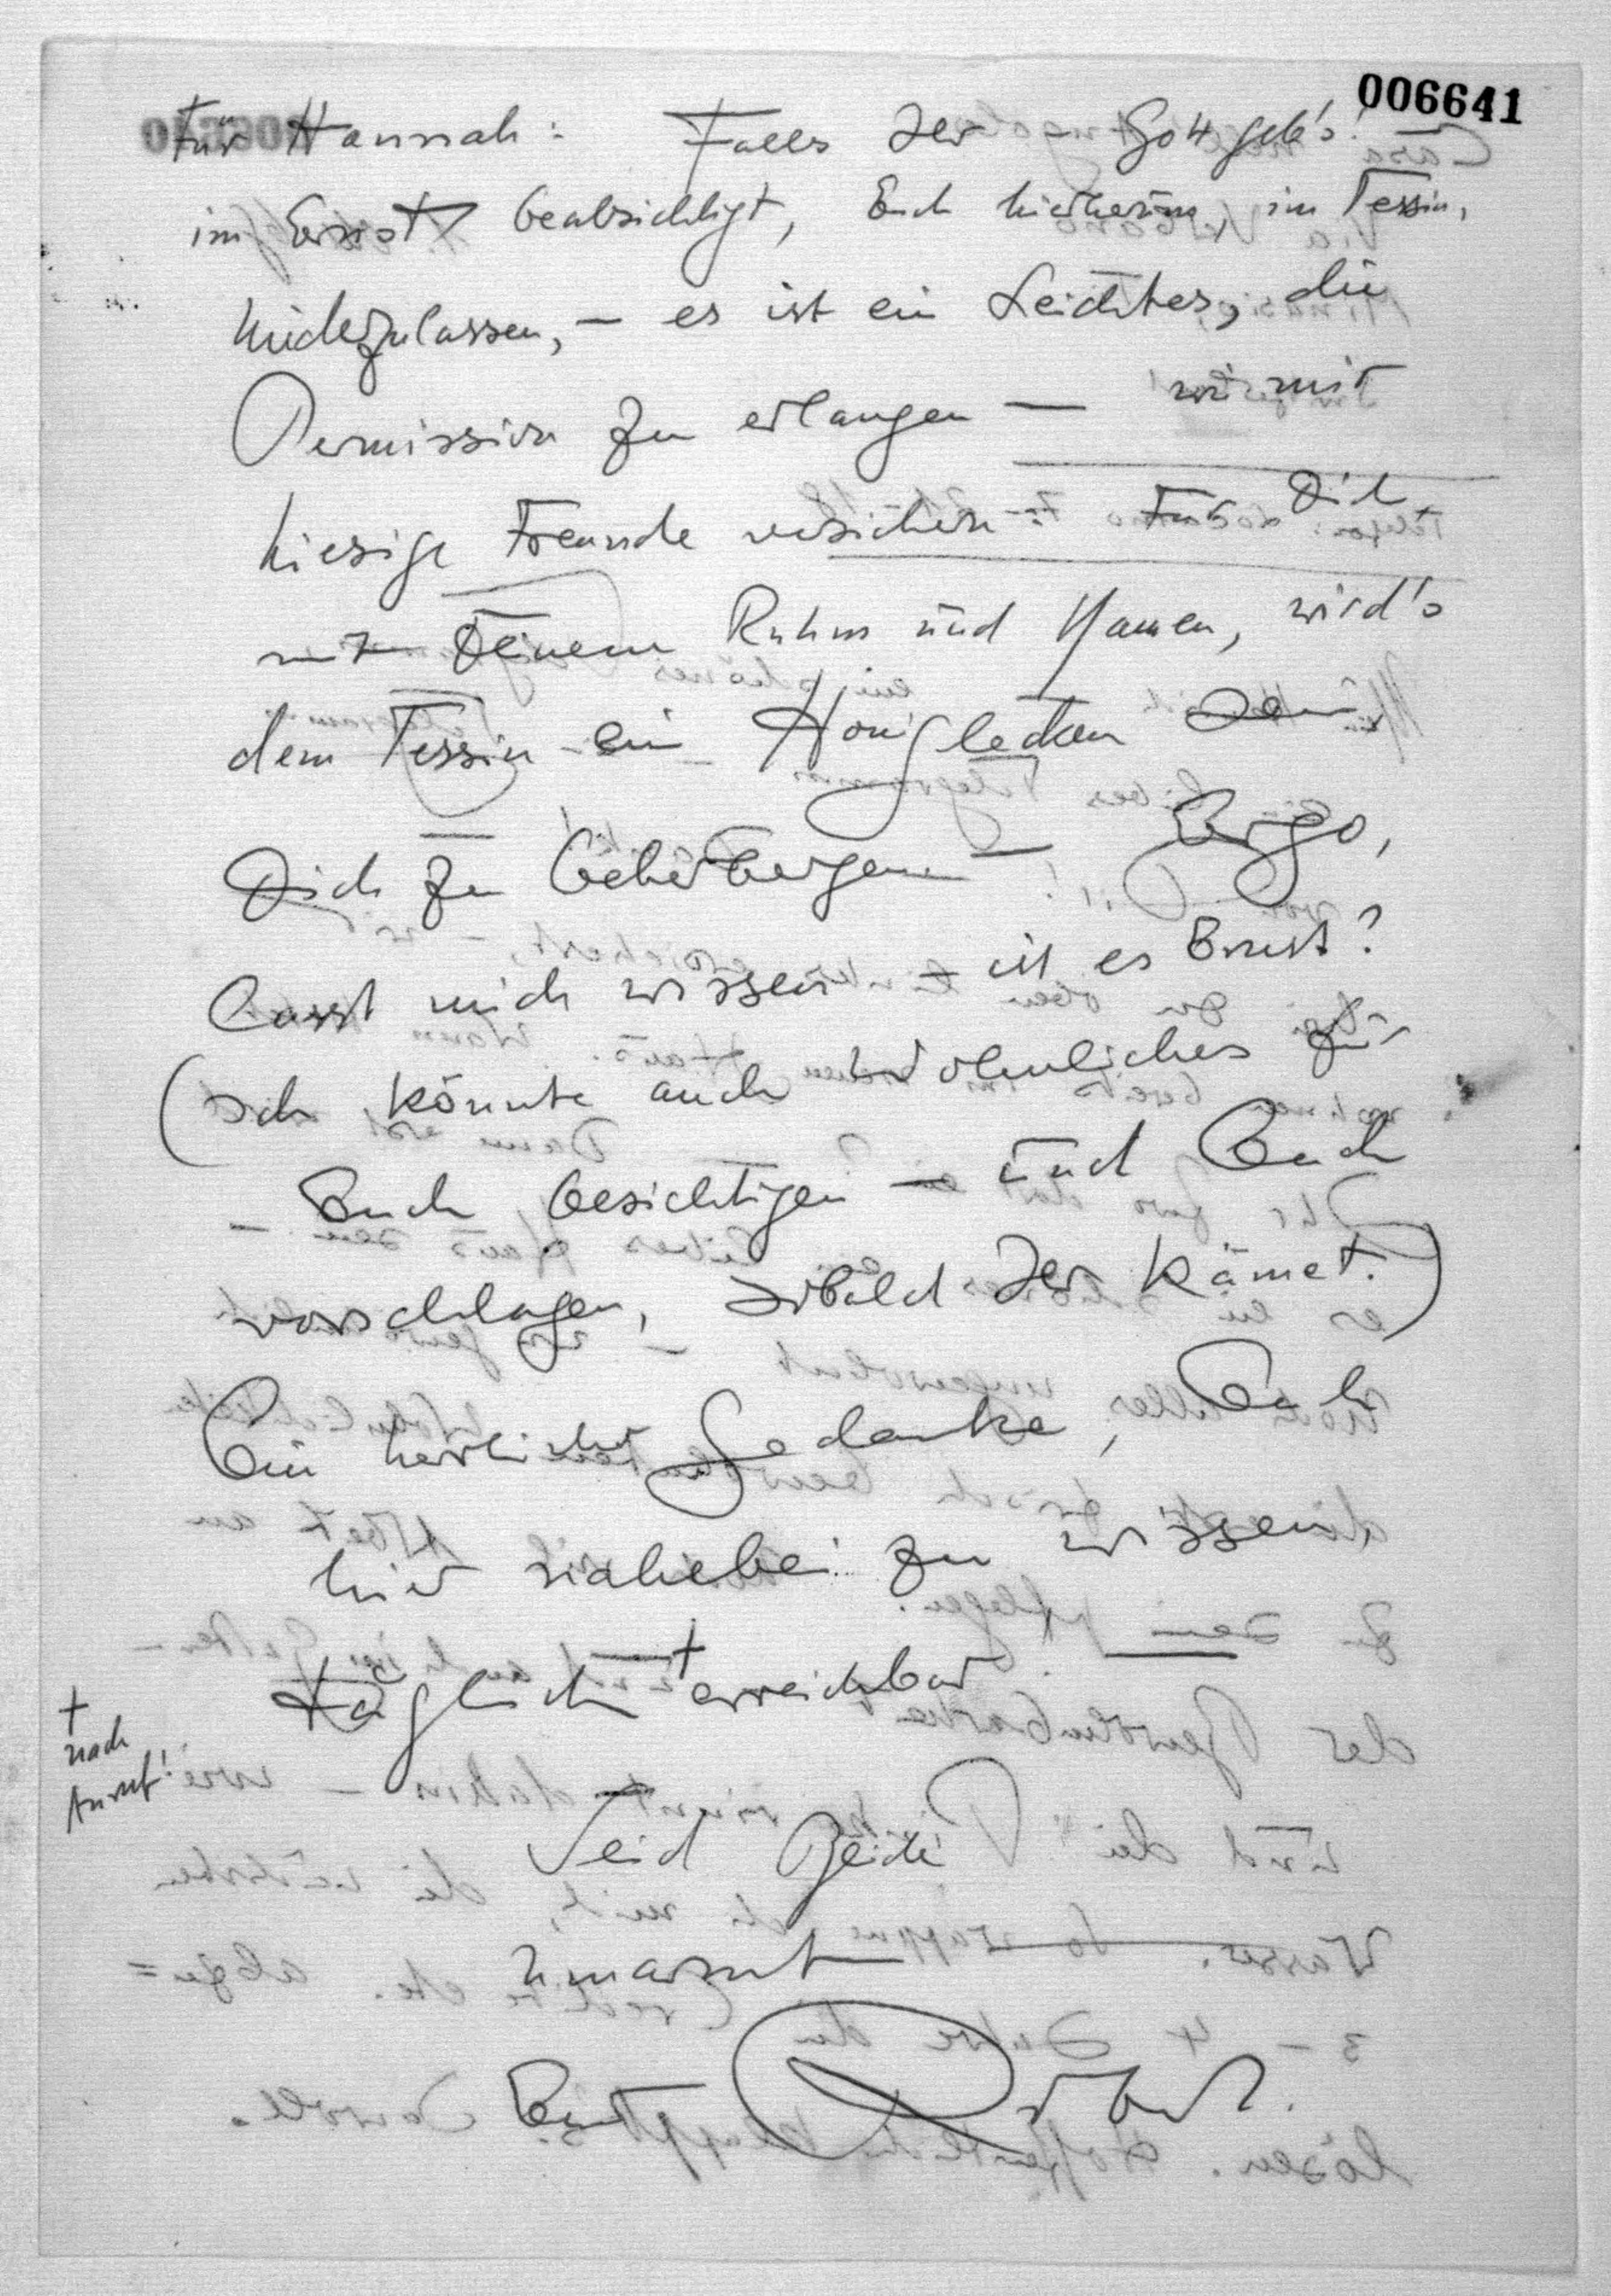 006641
Für Hannah: Falls Ihr Gott geb's!
im Ernst beabsichtigt, Euch hierherum im Tessin,
niederzulassen, – es ist ein Leichtes, die
Permission zu erlangen — wie mir
hiesige Freunde versichern – Für Dich,
mit Deinem Ruhm und Namen, wird's
dem Tessin ein Honiglecken sein,
Dich zu beherbergen — Ergo,
lasst mich wissen – ist es Ernst?
(Ich könnte auch Wohnliches für
Euch besichtigen – und Euch
vorschlagen, sobald Ihr kämet.)
Ein herrlicher Gedanke, Euch
hier nahebei zu wissen,
täglich + erreichbar
+ nach
Anruf!
Seid Beide
umarmt
Euer Robert.